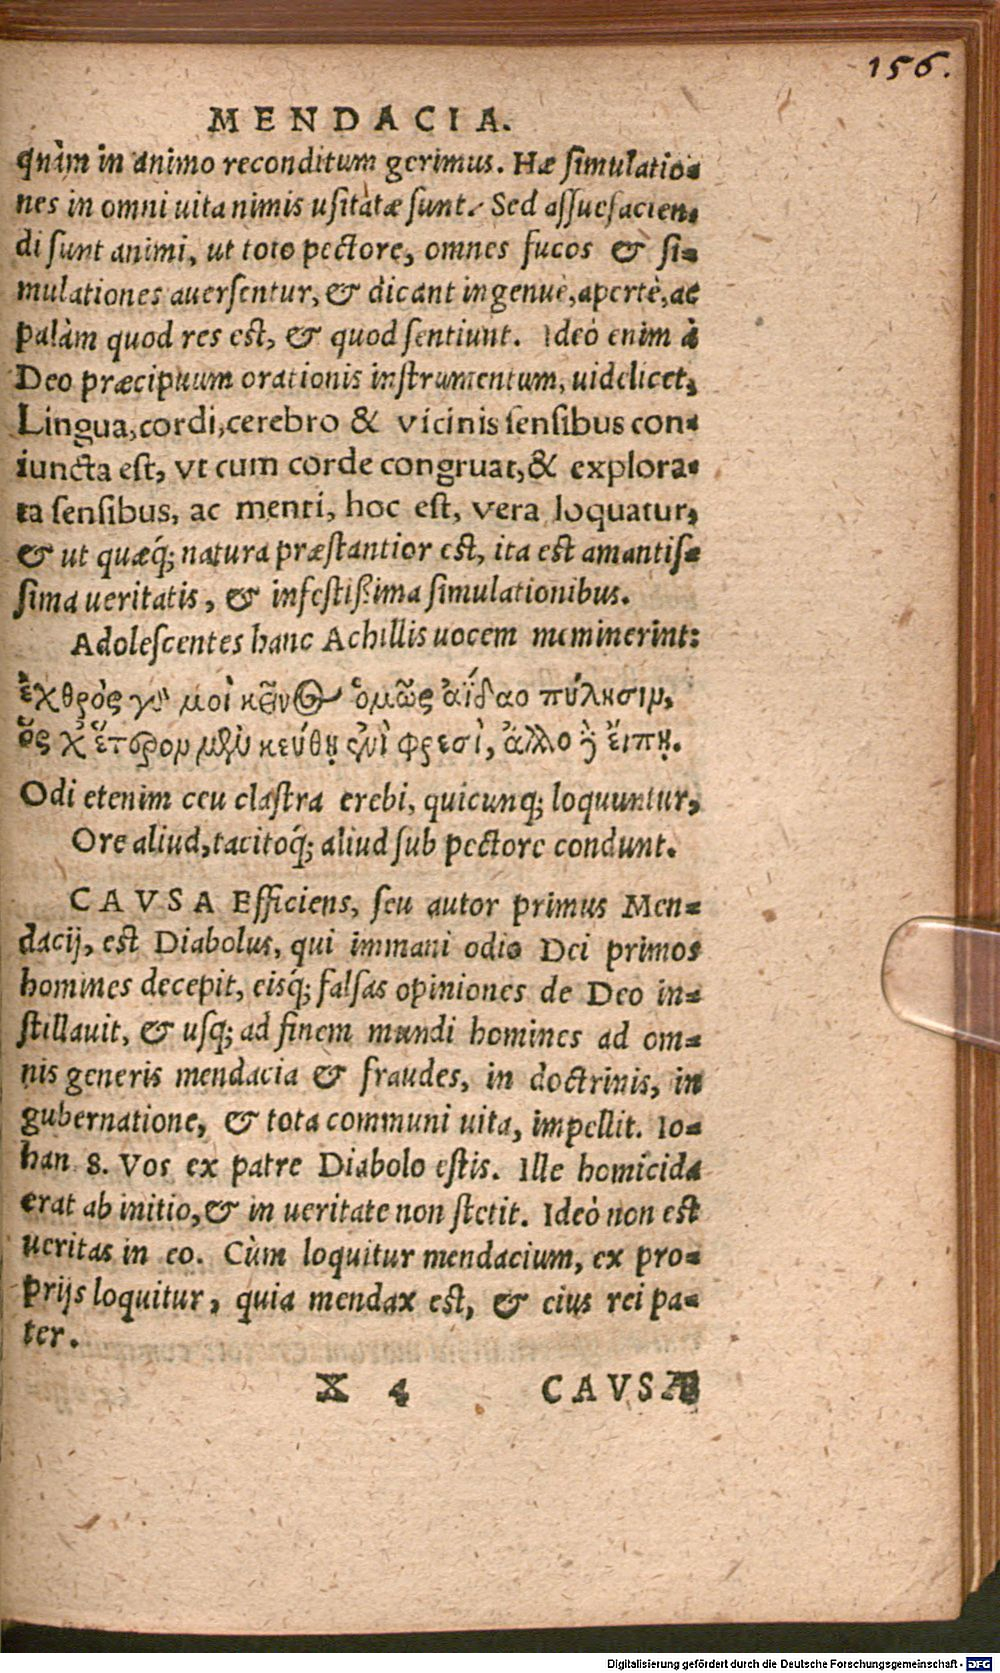 156.
MENDACIA.
quàm in animo reconditum gerimus. Hæ simulatio-
nes in omni uita nimis usitatæ sunt. Sed assuefacien-
di sunt animi, ut toto pectore, omnes fucos & si-
mulationes auersentur, & dicant ingenuè, apertè, ac
palàm quod res est, & quod sentiunt. Ideò enim à
Deo præcipuum orationis instrumentum, uidelicet,
Lingua, cordi, cerebro & vicinis sensibus con-
iuncta est, vt cum corde congruat, & explora-
ta sensibus, ac menti, hoc est, vera loquatur,
& ut quæq́; natura præstantior est, ita est amantis-
sima ueritatis, & infestißima simulationibus.
Adolescentes hanc Achillis uocem meminerint:
ἐχθρὸς γάρ μοι κεῖνος ὁμῶς ἀΐδαο πύλησιν,
ὅς χ' ἕτερον μὲν κεύθῃ ἐνὶ φρεσὶ, ἄλλο δὲ εἴπῃ.
Odi etenim ceu clastra erebi, quicunq; loquuntur,
Ore aliud, tacitoq́; aliud sub pectore condunt.
CAVSA Efficiens, seu autor primus Men-
dacij, est Diabolus, qui immani odio Dei primos
homines decepit, eisq́; falsas opiniones de Deo in-
stillauit, & usq; ad finem mundi homines ad om-
nis generis mendacia & fraudes, in doctrinis, in
gubernatione, & tota communi uita, impellit. Io-
han 8. Vos ex patre Diabolo estis. Ille homicida
erat ab initio, & in ueritate non stetit. Ideò non est
ueritas in eo. Cùm loquitur mendacium, ex pro-
prijs loquitur, quia mendax est, & eius rei pa-
ter.
X 4 CAVSAE
Digitalisierung gefördert durch die Deutsche Forschungsgemeinschaft - DFG